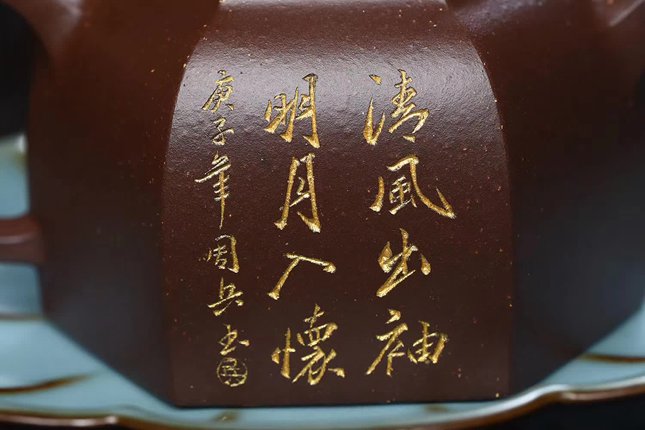 清風出袖
明月入懷
庚子年周兵书